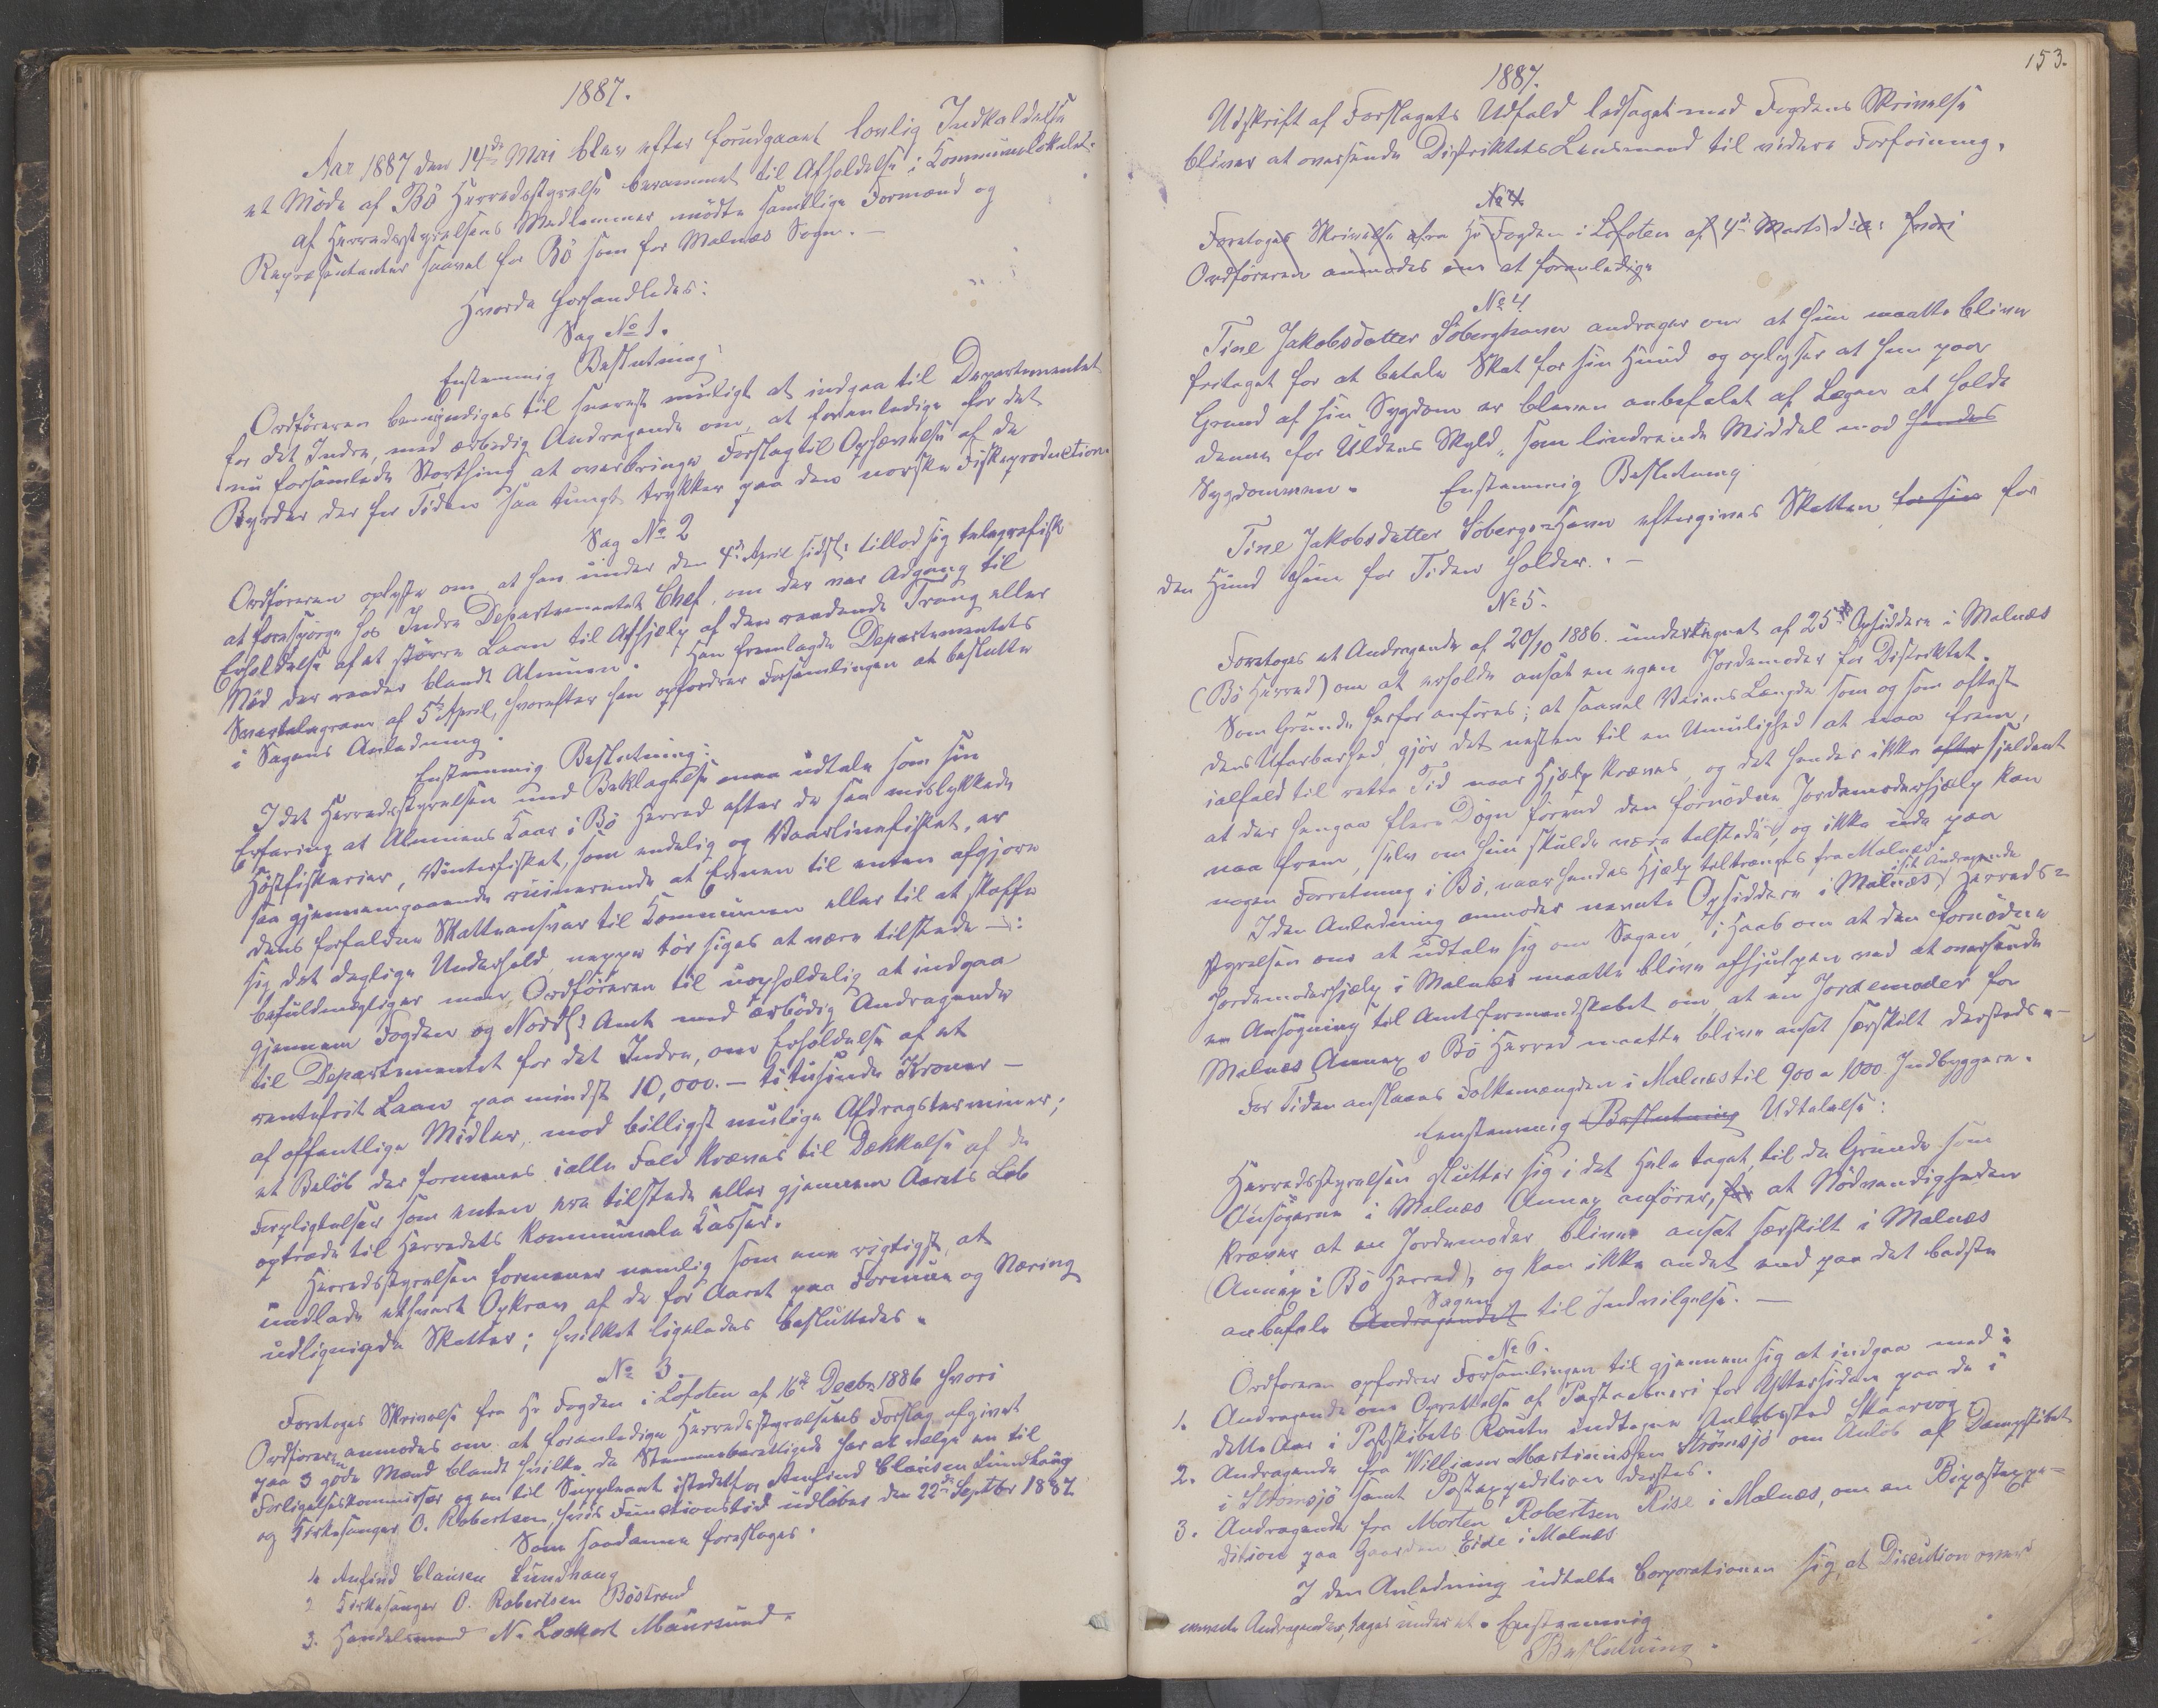 1887.
Aar 1887 den 14de Mai blev efter forudgaaet lovlig Indkaldelse
et Møde af Bö Herredsstyrelse berammet til Afholdelse i Kommunelokalet.
Af Herredsstyrelsens Medlemmer mödte samtlige Formænd og
Repræsentanter saavel for Bö som for Malnæs Sogn. —
Hvorda forhandledes:
Sag No 1.
Enstemmig Beslutning:
Ordföreren bemyndiges til snarest muligt at indgaa til Departementet
for det Indre, med ærbödig Andragende om, at foranledige for det
nu forsamlede Storthing at overbringe Forslag til Ophævelse af de
Byrder der for Tiden saa tungt trykker paa den norske Fiskeproduction
Sag No 2
Ordföreren oplyste om at han under den 4de April sidstl. tillod sig telegrafisk
at forespörge hos Indre Departementets Chef, om der var Adgang til
Erholdelse af et större Laan til Afhjælp af den raadende Trang eller
Nöd der raader blandt Almuen. Han fremlagde Departementets
Svartelegram af 5te April, hvorefter han opfordrer Forsamlingen at beslutte
i Sagens Anledning.
Enstemmig Beslutning:
I det Herredsstyrelsen med Beklagelse maa udtale som sin
Erfaring at Almuens Kaar i Bö Herred efter de saa mislykkede
Höstfiskerier, Vinterfisket, som endelig og Vaarlinefisket, er
saa gjennemgaaende ruinerende at Evnen til enten afgjöre
dens forfaldne Skatteansvar til Kommunen eller til at skaffe
sig det daglige Underhold neppe tör siges at være tilstede —:
befuldmægtiger man Ordföreren til uopholdelig at indgaa
gjennem Fogden og Nordl. Amt med ærbödig Andragende
til Departementet for det Indre, om Erholdelse af et
rentefrit Laan paa mindst 10,000.— titusinde Kroner —
af offentlige Midler, mod billigst mulige Afdragsterminer;
et Belöb der formenes ialle Fald kræves til Dækkelse af de
Forpligtelser som enten ere tilstede eller gjennem Aarets Löb
optræde til Herredets kommunale Kasser.
Herredsstyrelsen formener nemlig som rigtigst, at
undlade ethvert Opkrav af de for Aaret paa Formue og Næring
udlignede Skatter; hvilket ligeledes besluttedes.
No 3.
Foretoges Skrivelse fra Hr Fogden i Lofoten af 16de Decbr 1886 hvori
Ordföreren anmodes om at foranledige Herredsstyrelsens Forslag afgivet
paa 3 gode Mænd blandt hvilke de Stemmeberettigede har at vælge en til
Forligelseskommissær og en til Suppleant istedetfor Anfind Clausen Lundhaug
og Kirkesanger O. Robertsen, hvis Functionstid udlöber den 22de Septbr 1887.
Som saadanne foreslaaes.
1. Anfind Clausen Lundhaug
2 Kirkesanger O. Robertsen Böstrand
3. Handelsmand N. Lockert Maursund.
153.
1887.
Udskrift af Forslagets Udfald ledsaget med Fogdens Skrivelse
bliver at oversende Distriktets Lensmand til videre Forföining.
No 4
Foretoges Skrivelse fra Hr Fogden i Lofoten af 4de Marts d.a. hvori
Ordföreren anmodes om at foranledige
No 4.
Tine Jakobsdatter Söberghavn andrager om at hun maatte blive
fritaget for at betale Skat for sin Hund og oplyser at hun paa
Grund af sin Sygdom er bleven anbefalet af Lægen at holde
denne for Uldens Skyld, som lindrende Middel mod hendes
Sygdommen. Enstemmig Beslutning
Tine Jakobsdatter Söberg-Havn eftergives Skatten for sin for
den Hund hun for Tiden holder. —
No 5.
Foretoges et Andragende af 20/10 1886. undertegnet af 25 Opsiddere i Malnæs
(Bö Herred) om at erholde ansat en egen Jordemoder for Distriktet.
Som Grunde herfor anföres; at saavel Veiens Længde som og som oftest
dens Ufarbarhed, gjör det næsten til en Umulighed at naa frem,
ialfald til rette Tid naar Hjælp kræves, og det hender ikke efter sjeldent
at der hengaar flere Dögn förend den fornödne Jordemoderhjælp kan
naa frem, selv om hun skulde være tilstede, og ikke ude paa
nogen Forretning i Bö, naar hendes Hjælp tiltrænges fra Malnæs.
I den Anledning anmoder nævnte Opsiddere i Malnæs i sit Andragende Herreds-
styrelsen om at udtale sig om Sagen, i Haab om at den fornödne
Jordemoderhjælp i Malnæs maatte blive afhjulpen ved at oversende
en Ansögning til Amtsformandskabet om, at en Jordemoder for
Malnæs Annex i Bö Herred maatte blive ansat særskilt dersteds. —
For Tiden anslaaes Folkemængden i Malnæs til 900 a 1000 Indbyggere.
Eenstemmig Beslutning Udtalelse:
Herredsstyrelsen slutter sig i det Hele taget til de Grunde som
Ansögerne i Malnæs Annex anförer, for at Nödvendigheden
kræver at en Jordemoder bliver ansat særskilt i Malnæs
(Annex i Bö Herred), og kan ikke andet end paa det bedste
anbefale Andragendet Sagen til Indvilgelse. —
No 6.
Ordföreren opfordrer Forsamlingen til gjennem sig at indgaa med:
1. Andragende om Oprettelse af Postaabneri for Yttersiden paa de i
dette Aar i Postskibets Route indtagne Anlöbssted Skaarvog.
2. Andragende fra William Martinussen Strömsjö om Anlöb af Dampskibet
i Strömsjö samt Postexpedition dersteds.
3. Andragende fra Morten Robertsen Rise i Malnæs, om en Bipostexpe-
dition paa Gaarden Eide i Malnæs
I den Anledning udtalte Corporationen sig, at Discution over
nævnte Andragender, tages under et. Enstemmig
Beslutning.